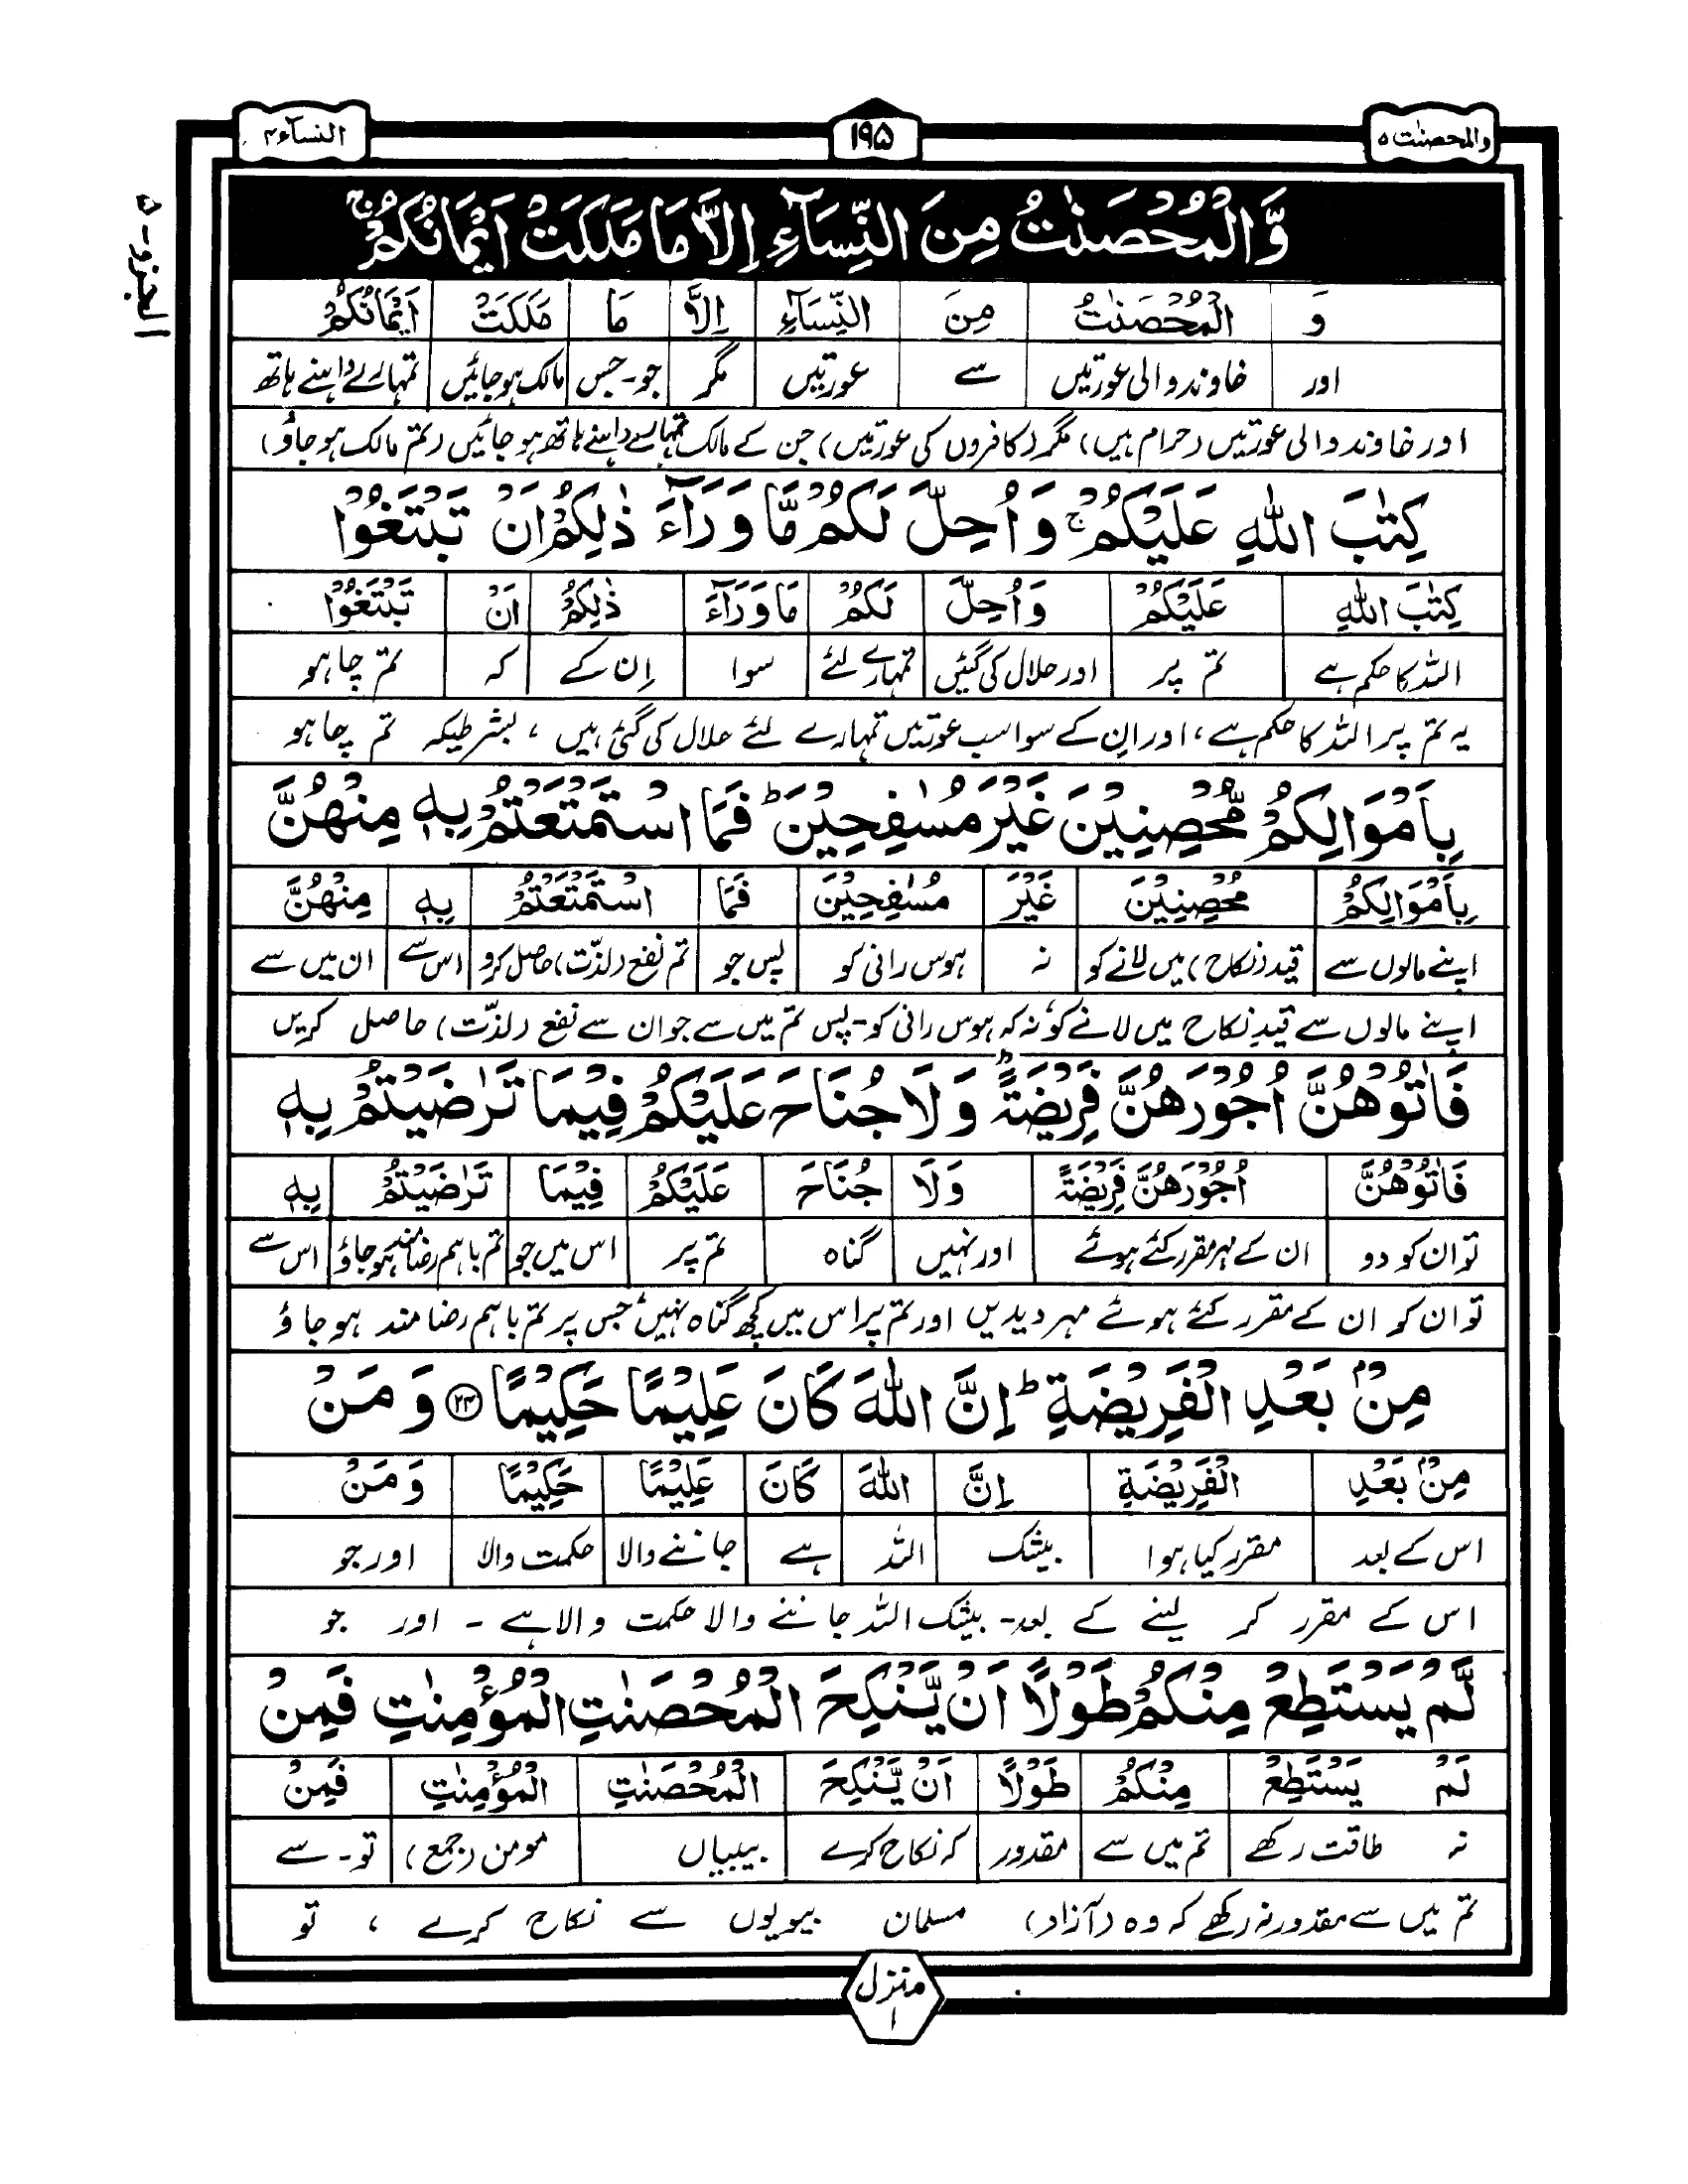 والمحصنٰت ۵
۱۹۵
النسآء ۴
الجزو - ۵
وَّالْمُحْصَنٰتُ مِنَ النِّسَآءِ اِلَّا مَا مَلَكَتْ اَيْمَانُكُمْ ۚ
وَ الْمُحْصَنٰتُ مِنَ النِّسَآءِ اِلَّا مَا مَلَكَتْ اَيْمَانُكُمْ
اور خاوند والی عورتیں سے عورتیں مگر جو۔جس مالک ہوجائیں تمہارے داہنے ہاتھ
اور خاوند والی عورتیں (حرام ہیں) مگر (کافروں کی عورتیں) جن کے مالک تمہارے داہنے ہاتھ ہوجائیں (تم مالک ہوجاؤ)
كِتٰبَ اللّٰهِ عَلَيْكُمْ ۚ وَاُحِلَّ لَكُمْ مَّا وَرَآءَ ذٰلِكُمْ اَنْ تَبْتَغُوْا
كِتٰبَ اللّٰهِ عَلَيْكُمْ وَاُحِلَّ لَكُمْ مَا وَرَآءَ ذٰلِكُمْ اَنْ تَبْتَغُوْا
اللہ کا حکم ہے تم پر اور حلال کی گئیں تمہارے لئے سوا اِن کے کہ تم چاہو
یہ تم پر اللہ کا حکم ہے، اور اِن کے سوا سب عورتیں تمہارے لئے حلال کی گئی ہیں ، بشرطیکہ تم چاہو
بِاَمْوَالِكُمْ مُّحْصِنِيْنَ غَيْرَ مُسٰفِحِيْنَ ؕ فَمَا اسْتَمْتَعْتُمْ بِهٖ مِنْهُنَّ
بِاَمْوَالِكُمْ مُحْصِنِيْنَ غَيْرَ مُسٰفِحِيْنَ فَمَا اسْتَمْتَعْتُمْ بِهٖ مِنْهُنَّ
اپنے مالوں سے قید (نکاح) میں لانے کو نہ ہوس رانی کو پس جو تم نفع (لذّت) حاصل کرو اس سے ان میں سے
اپنے مالوں سے قیدِ نکاح میں لانے کو، نہ کہ ہوس رانی کو۔ پس تم میں سے جو ان سے نفع (لذّت) حاصل کریں
فَاٰتُوْهُنَّ اُجُوْرَهُنَّ فَرِيْضَةً ؕ وَلَا جُنَاحَ عَلَيْكُمْ فِيْمَا تَرٰضَيْتُمْ بِهٖ
فَاٰتُوْهُنَّ اُجُوْرَهُنَّ فَرِيْضَةً وَلَا جُنَاحَ عَلَيْكُمْ فِيْمَا تَرٰضَيْتُمْ بِهٖ
تو ان کو دو ان کے مہر مقرر کئے ہوئے اور نہیں گناہ تم پر اس میں جو تم باہم رضامند ہوجاؤ اس سے
تو ان کو ان کے مقرر کئے ہوئے مہر دیدیں اور تم پر اس میں کچھ گناہ نہیں جس پر تم باہم رضامند ہو جاؤ
مِنْۢ بَعْدِ الْفَرِيْضَةِ ؕ اِنَّ اللّٰهَ كَانَ عَلِيْمًا حَكِيْمًا ۲۴ وَمَنْ
مِنْۢ بَعْدِ الْفَرِيْضَةِ اِنَّ اللّٰهَ كَانَ عَلِيْمًا حَكِيْمًا وَمَنْ
اس کے بعد مقرر کیا ہوا بیشک اللہ ہے جاننے والا حکمت والا اور جو
اس کے مقرر کر لینے کے بعد۔ بیشک اللہ جاننے والا حکمت والا ہے ۔ اور جو
لَّمْ يَسْتَطِعْ مِنْكُمْ طَوْلًا اَنْ يَّنْكِحَ الْمُحْصَنٰتِ الْمُؤْمِنٰتِ فَمِنْ
لَمْ يَسْتَطِعْ مِنْكُمْ طَوْلًا اَنْ يَّنْكِحَ الْمُحْصَنٰتِ الْمُؤْمِنٰتِ فَمِنْ
نہ طاقت رکھے تم میں سے مقدور کہ نکاح کرے بیبیاں مومن (جمع) تو۔ سے
تم میں سے مقدور نہ رکھے کہ وہ (آزاد) مسلمان بیویوں سے نکاح کرے ، تو
منزل
۱